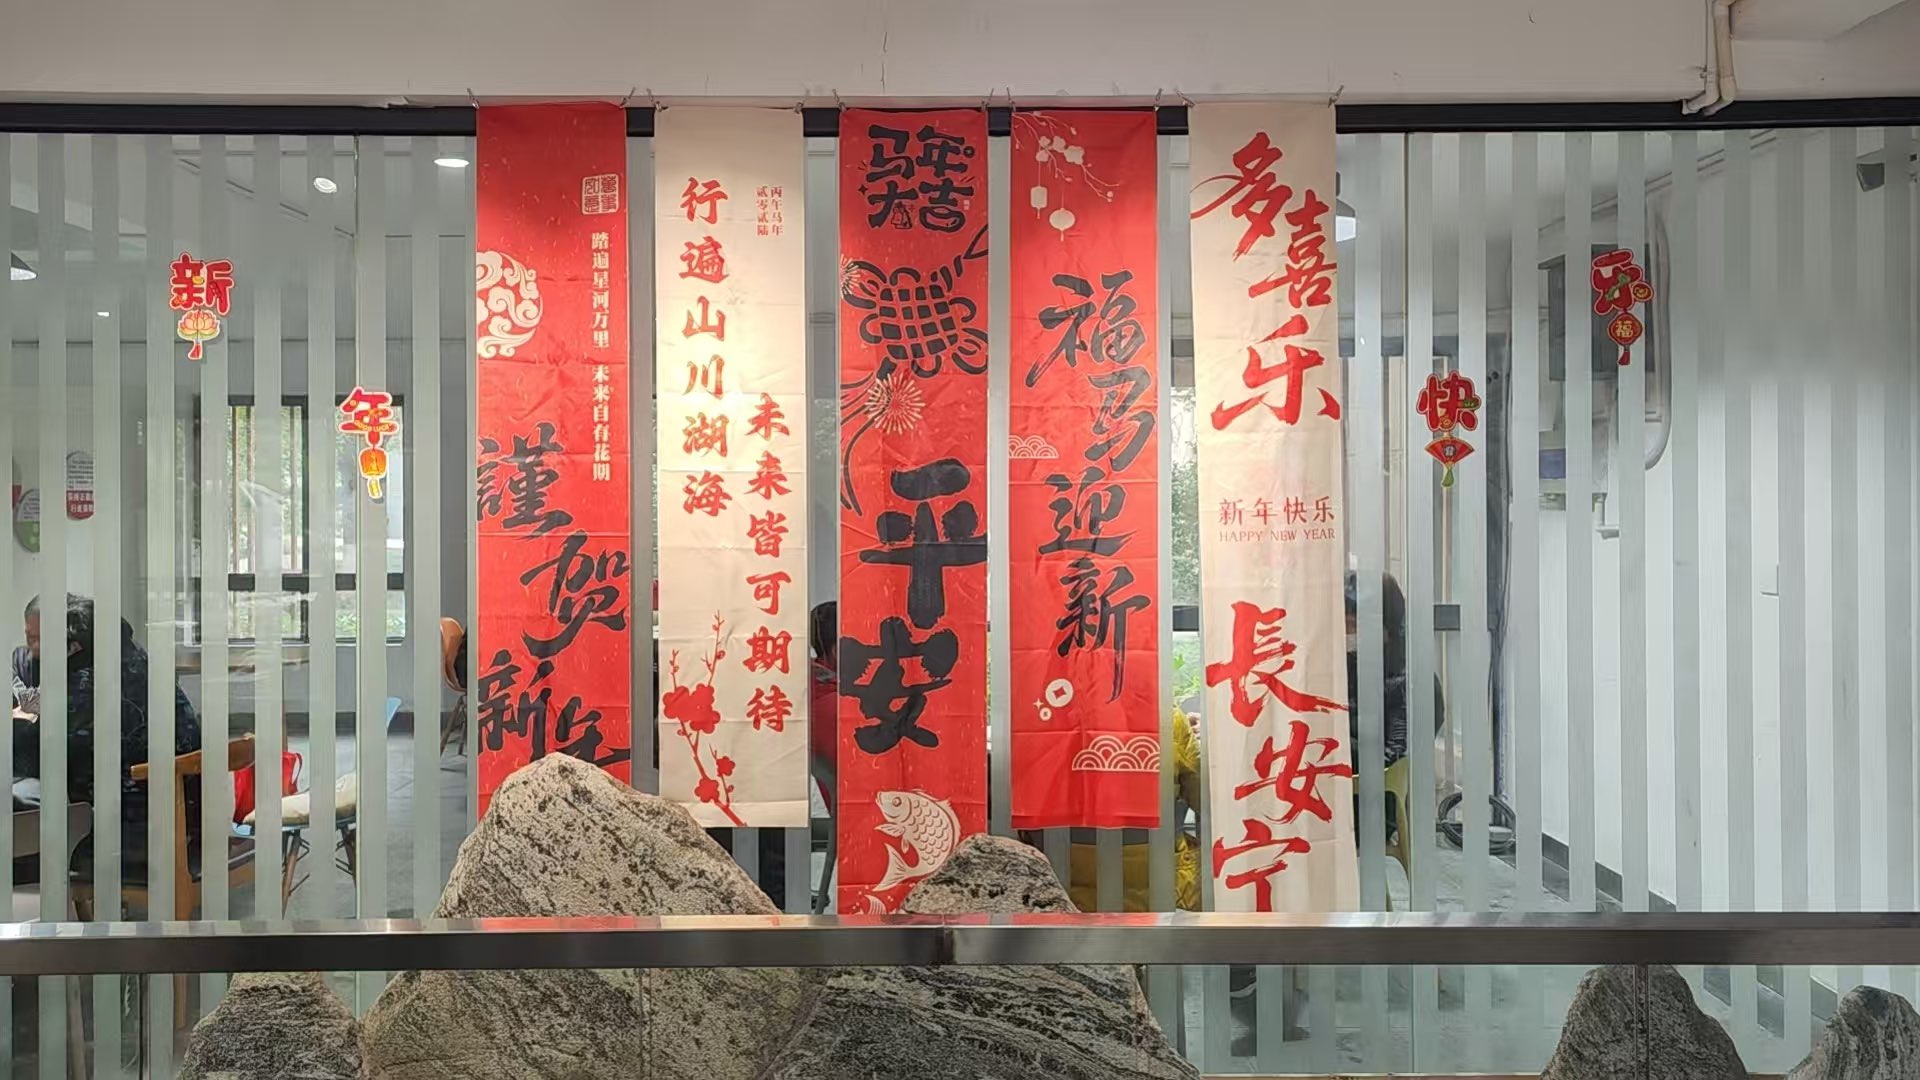 新
年
萬事
如意
踏遍星河万里 未来自有花期
謹贺新年
行遍山川湖海
未来皆可期待
丙午马年
贰零贰陆
马年
大吉
平安
福马迎新
多喜乐
新年快乐
HAPPY NEW YEAR
長安宁
快
乐
福